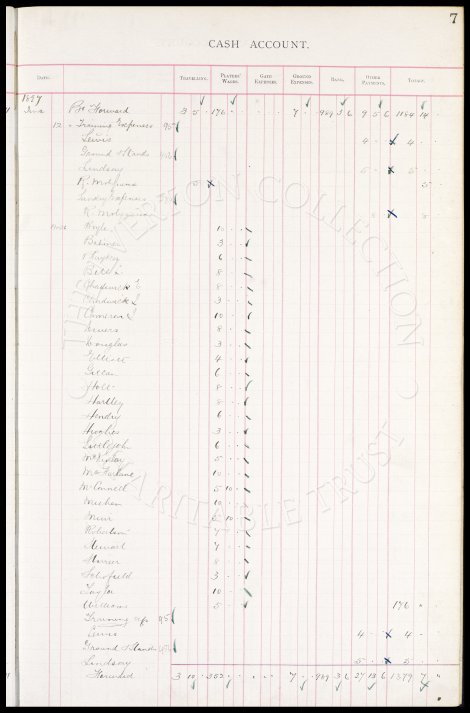 7
CASH ACCOUNT.
DATE. TRAVELLING. PLAYERS' WAGES. GATE EXPENSES. GROUND EXPENSES. BANK. OTHER PAYMENTS. TOTAL.
1897
Bt Forward 3 5 176 7 989 3 6 9 5 6 1184 14
12 Training Expenses 95
Lewis 4 4
Ground & Stands
Lindsay 5 5
R. Molyneux 5 5
Sundry Expenses
R. Molyneux 5 5
10
3
6
Bell 8
Chadwick E 8
Chadwick 3
Cameron 10
8
Douglas 3
Elliott 4
6
Holt 8
Hartley 8
Hendry 6
Hughes 3
Littlejohn 6
5
McFarlane 10
McConnell 5 10
Meehan 10
Muir 5 10
Robertson 4
Stewart 9
Storrier 8
Schofield 3
Taylor 10
Williams 5 176
Training Exps 95
Lewis 4 4
Ground & Stands
Lindsay 5 5
Forward 3 10 352 7 989 3 6 27 13 6 1379 7
EVERTON COLLECTION
CHARITABLE TRUST